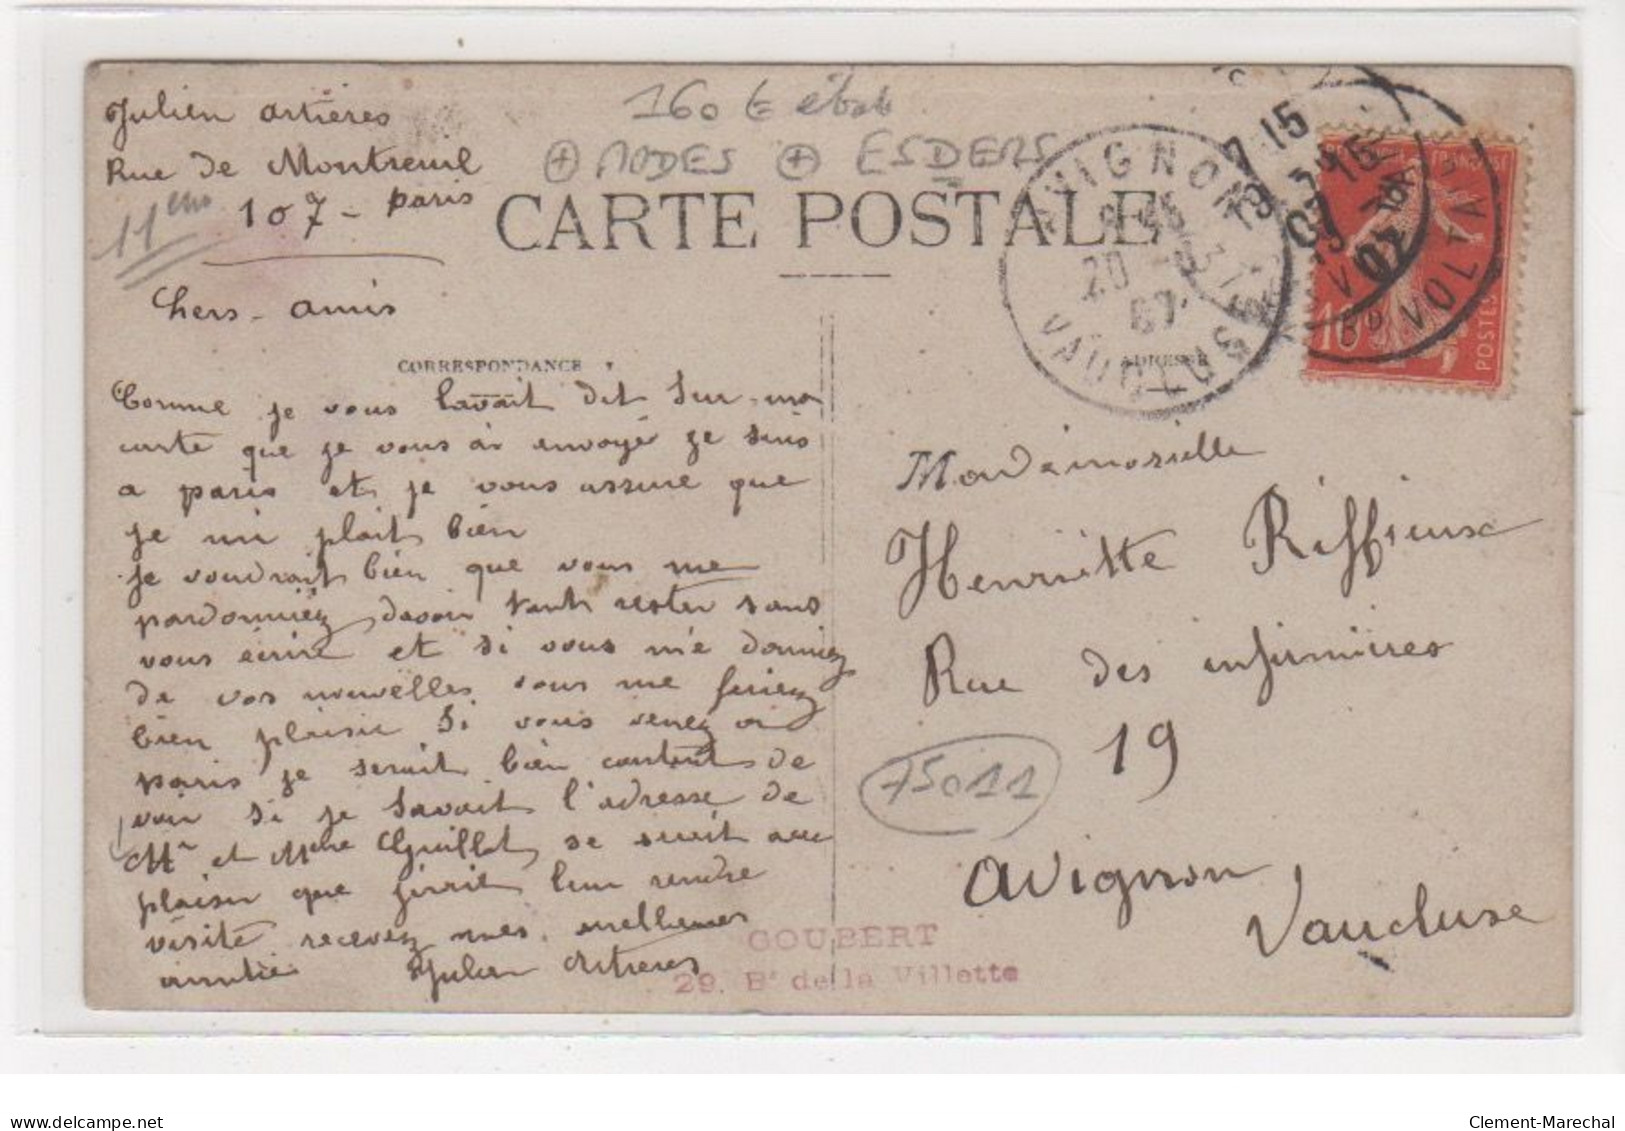 Julien Artières
Rue de Montreuil
107 - Paris
11eme
160 € ébob
MODES ESDERS
CARTE POSTALE
chers - amis
CORRESPONDANCE
ADRESSE
Comme je vous lavait dit Sur ma
carte que je vous ai envoyé je suis
a paris et je vous assure que
je mi plait bien
je voudrait bien que vous me
pardonniéz davoir tant rester sans
vous écrire et si vous m'e donniez
de vos nouvelles vous me feriez
bien plaisir Si vous venez a
paris je serait bien content de
voir si je savait l'adresse de
Mr et Mme Guillot, se serait avec
plaisir que j'irrit leur rendre
visité recevez mes meilleures
amitié Julien Artieres
Mademoiselle
Henriette Riffieux
Rue des infirmières
19
75011
Avignon,
Vaucluse
GOUBERT
29. Bd de la Villette
AVIGNON
20 - 3
07
VAUCLUSE
7 15
19 3
07
Bd VOLTAIRE
10
POSTES
delcampe.net
Clement-Marechal